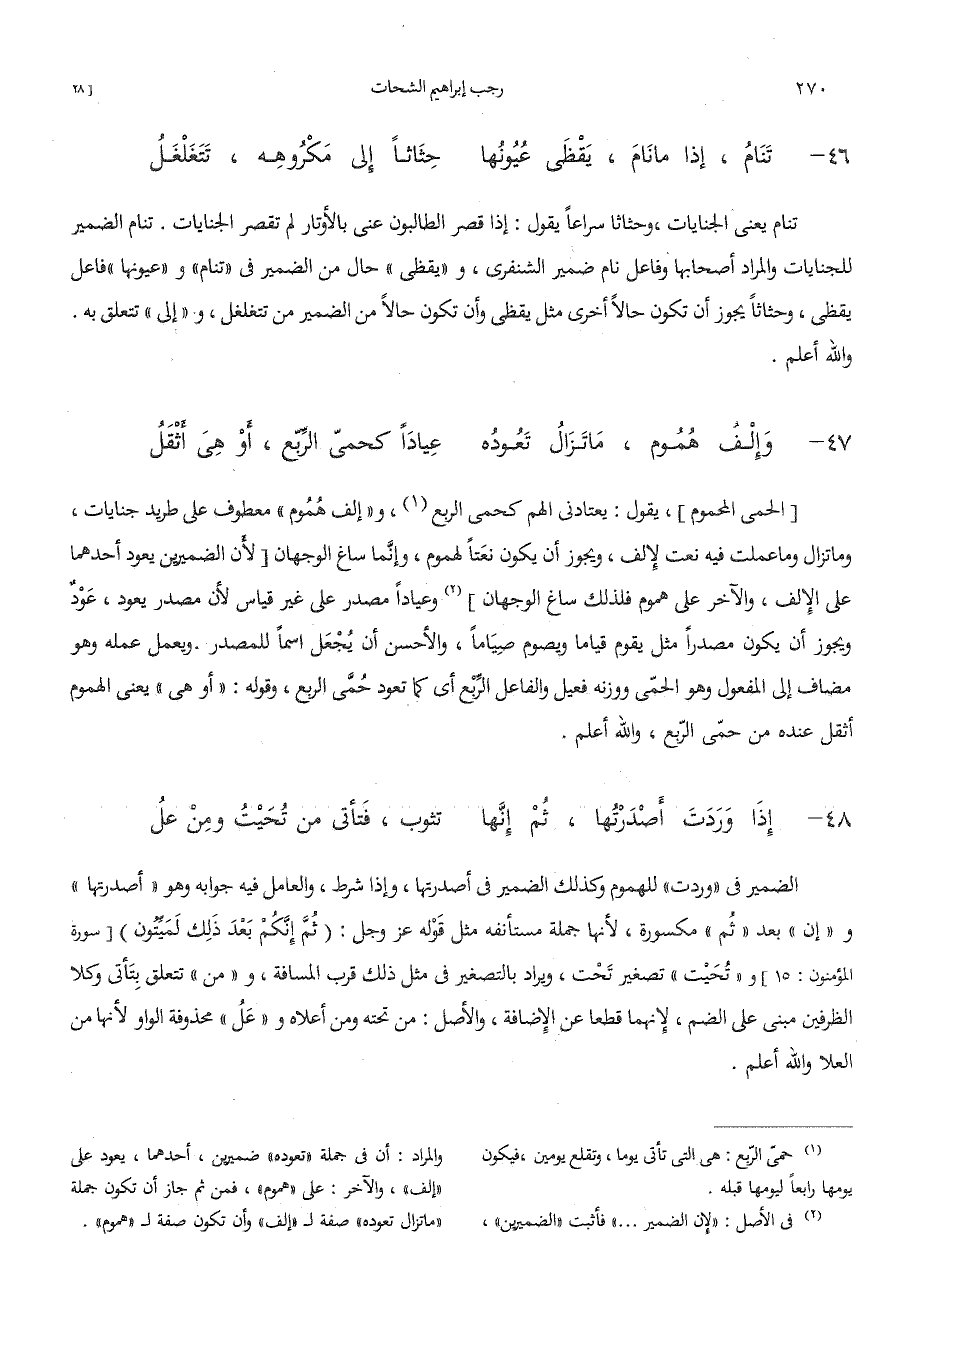 ٢٧٠ رجب إبراهيم الشحات [ ٢٨
٤٦- تَنَامُ ، إذا مانَامَ ، يَقْظَى عُيُونُها حِثَاثـاً إِلى مَكْرُوهِـه ، تَتَغَلْغَـلُ
تنام يعنى الجنايات ،وحثاثا سراعاً يقول : إذا قصر الطالبون عنى بالأوتار لم تقصر الجنايات . تنام الضمير
للجنايات والمراد أصحابها وفاعل نام ضمير الشنفرى ، و «يقظى » حال من الضمير فى «تنام» و «عيونها »فاعل
يقظى ، وحثاثاً يجوز أن تكون حالاً أخرى مثل يقظى وأن تكون حالاً من الضمير من تتغلغل ، و « إلى » تتعلق به .
والله أعلم .
٤٧- وَإِلْـفُ هُمُـوم ، مَاتَـزَالُ تَعُـودُه عِيادَاً كحمىّ الرِّبّع ، أَوْ هِىَ أَثْقَلُ
[ الحمى المحموم ] ، يقول : يعتادنى الهم كحمى الربع (١) ، و« إلف هُمُوم » معطوف على طريد جنايات ،
وماتزال وماعملت فيه نعت لإلف ، ويجوز أن يكون نعَتاً لهموم ، وإنَّما ساغ الوجهان [ لأن الضميرين يعود أحدهما
على الإلف ، والآخر على هموم فلذلك ساغ الوجهان ] (٢) وعياداً مصدر على غير قياس لأن مصدر يعود ، عَوْدٌ
ويجوز أن يكون مصدراً مثل يقوم قياما ويصوم صِيَاماً ، والأحسن أن يُجْعَل اسماً للمصدر .ويعمل عمله وهو
مضاف إلى المفعول وهو الحمّى ووزنه فعيل والفاعل الرِّبْع أى كما تعود حُمَّى الربع ، وقوله : « أو هى » يعنى الهموم
أثقل عنده من حمّى الرّبع ، والله أعلم .
٤٨- إِذَا وَرَدَتَ أَصْدَرْتُها ، ثُمْ إِنَّها تثوب ، فَتَأتى من تُحَيْتُ ومِنْ علُ
الضمير فى «وردت» للهموم وكذلك الضمير فى أصدرتها ، وإذا شرط ، والعامل فيه جوابه وهو « أصدرتها »
و « إن » بعد « ثُم » مكسورة ، لأنها جملة مستأنفه مثل قَوْله عز وجل : ( ثُمَّ إِنَّكُمْ بَعْدَ ذَلِك لَمَيِّتُون ) [ سورة
المؤمنون : ١٥ ] و « تُحَيْت » تصغير تَحْت ، ويراد بالتصغير فى مثل ذلك قرب المسافة ، و « من » تتعلق بِتَأتى وكلا
الظرفين مبنى على الضم ، لإنهما قطعا عن الإضافة ، والأصل : من تحته ومن أعلاه و « عَلُ » محذوفة الواو لأنها من
العلا والله أعلم .
(١) حمىّ الرّبع : هى التى تأتى يوما ، وتقلع يومين ،فيكون
يومها رابعاً ليومها قبله .
(٢) فى الأصل : «لإن الضمير ...» فأثبت «الضميرين» ،
والمراد : أن فى جملة «تعوده» ضميرين ، أحدهما ، يعود على
«إلف» ، والآخر : على «هموم» ، فمن ثم جاز أن تكون جملة
«ماتزال تعوده» صفة لـ «إلف» وأن تكون صفة لـ «هموم» .